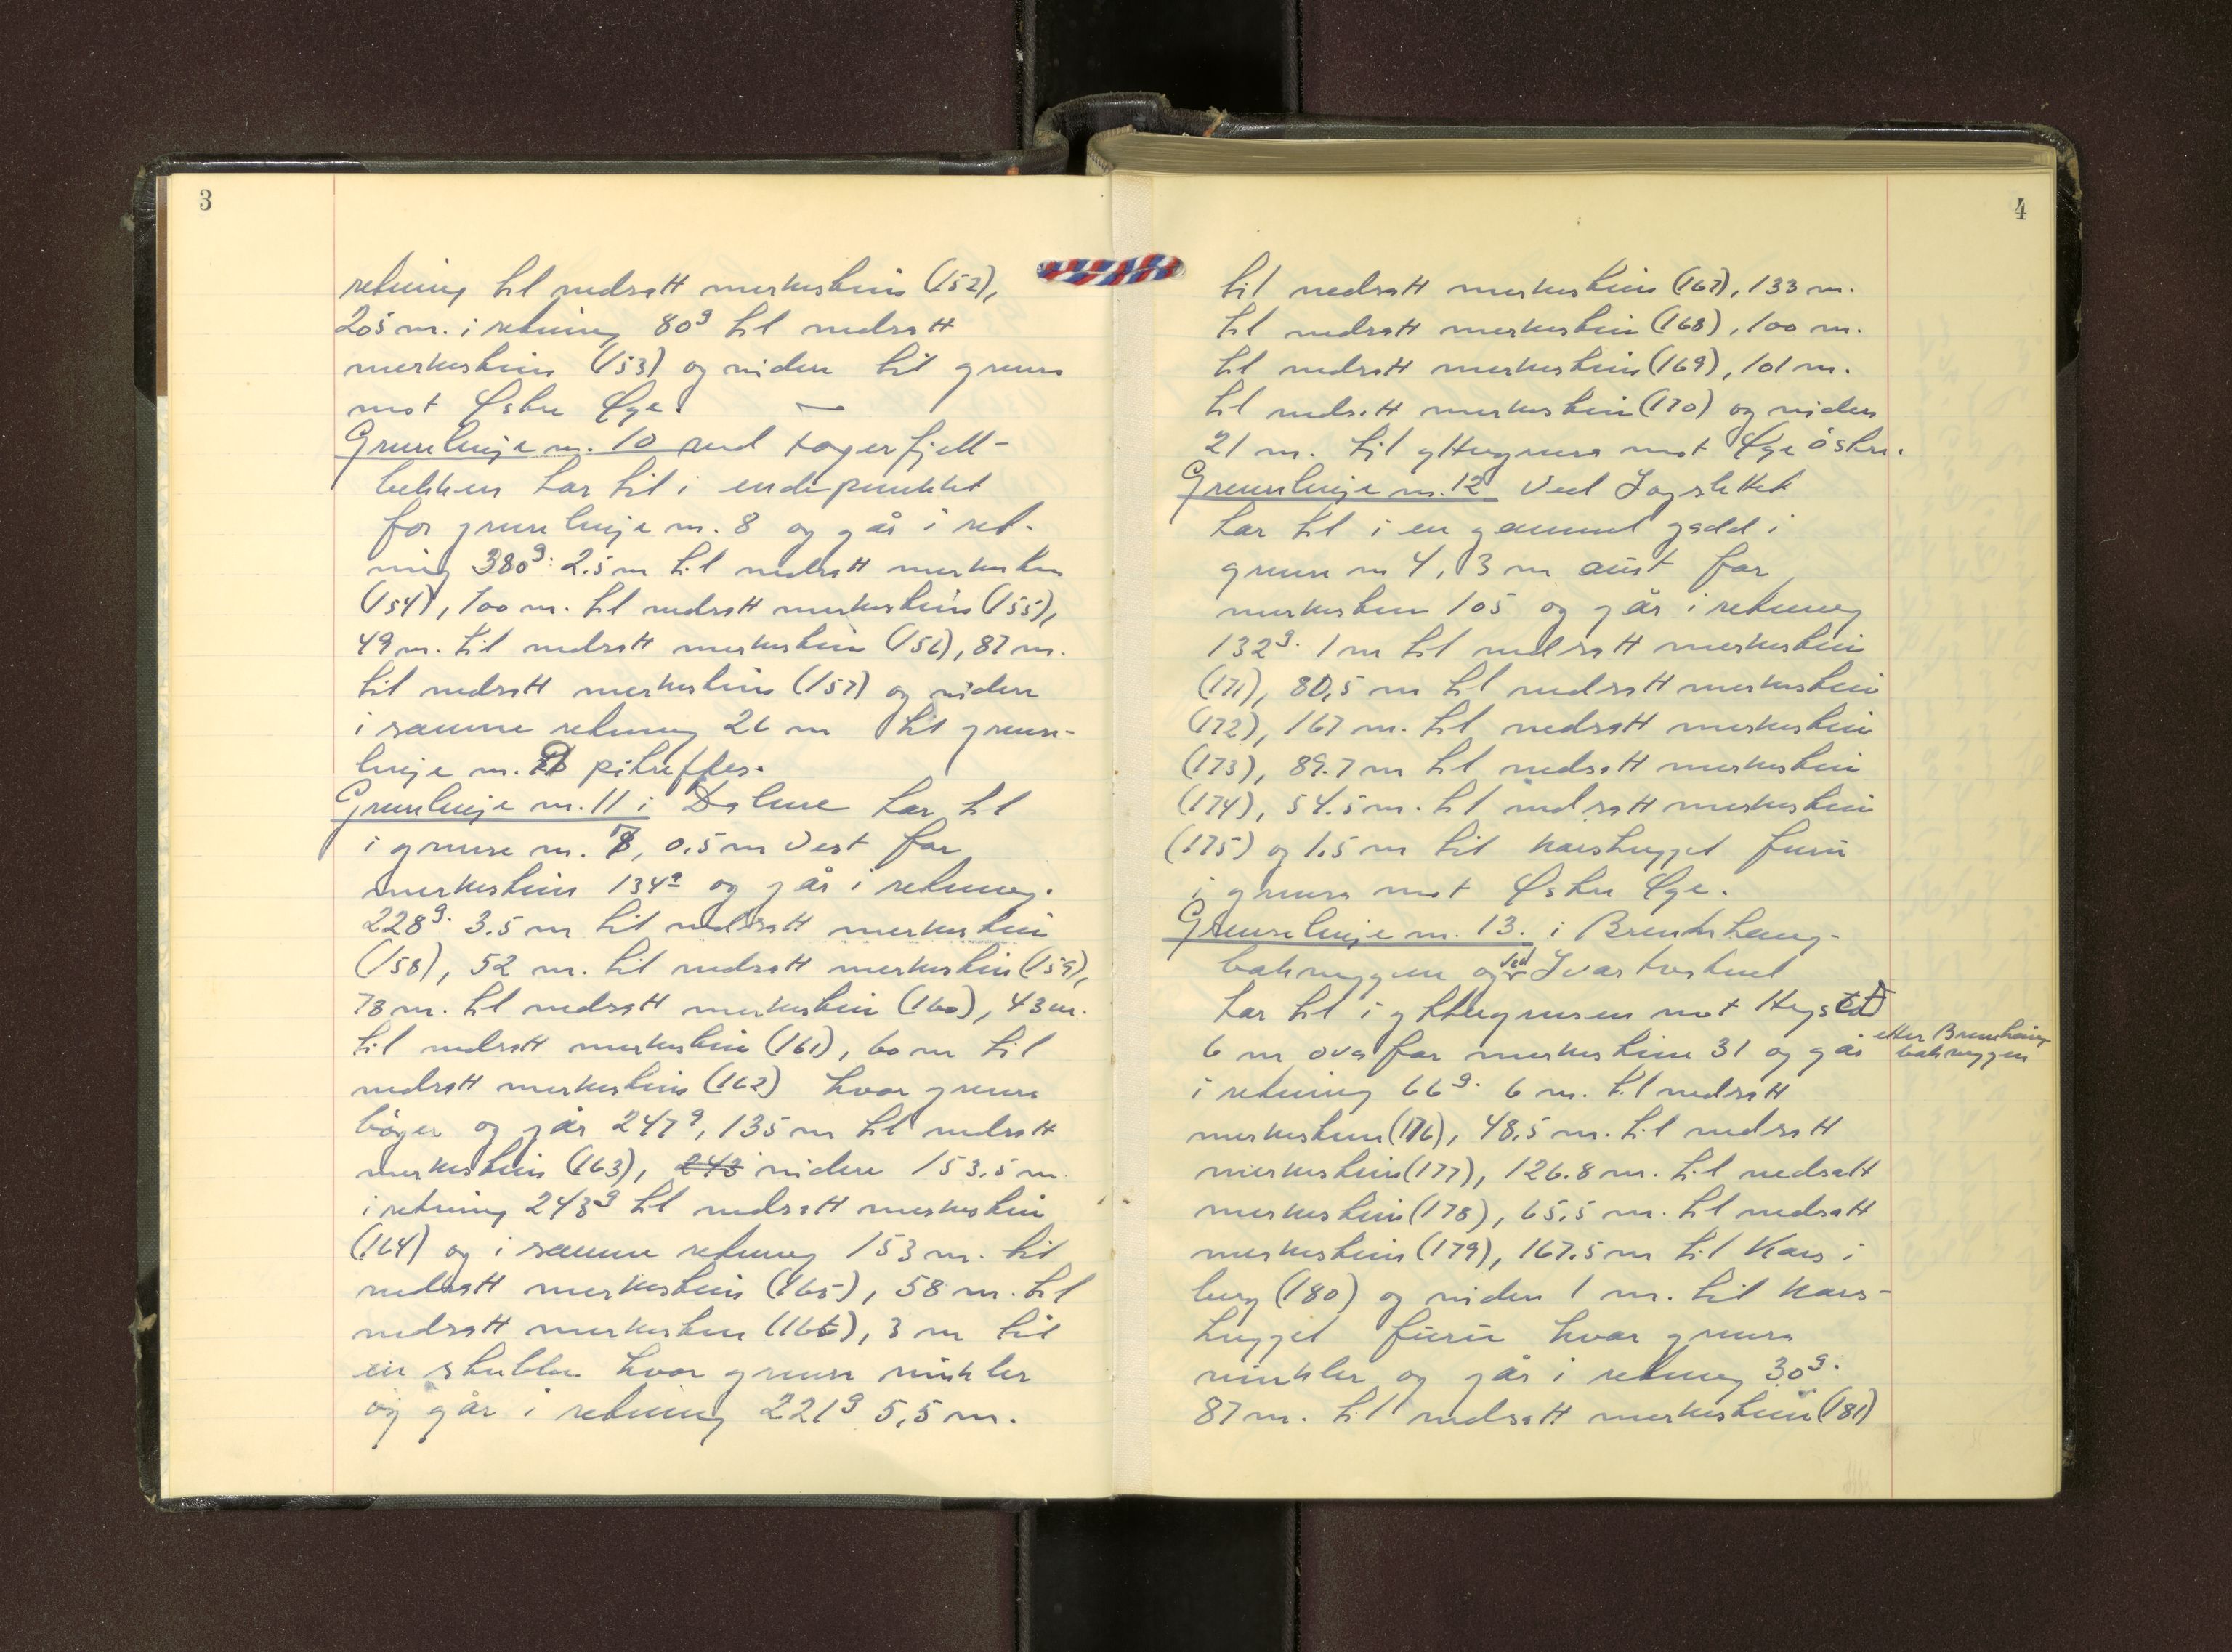 3
retning til nedsatt merkestein (152),
205 m. i retning 80g til nedsatt
merkestein (153) og videre til grensa
mot Østre Øye.
Grenselinje nr. 10 ved Fagerfjell-
bekken tar til i endepunktet
for grenselinje nr. 8 og går i ret-
ning 380g: 2.5 m til nedsatt merkestein
(154), 100 m. til nedsatt merkestein (155),
49 m. til nedsatt merkestein (156), 87 m.
til nedsatt merkestein (157) og videre
i samme retning 26 m til grense-
linje nr. påtreffes.
Grenselinje nr. 11 i tar til
i grense nr. 0,5 m vest for
merkestein 134a og går i retning.
228g. 3.5 m til nedsatt merkestein
(158), 52 m. til nedsatt merkestein (159),
78 m. til nedsatt merkestein (160), 43 m.
til nedsatt merkestein (161), 60 m til
nedsatt merkestein (162) hvor grensa
bøyer og går 247g, 135 m til nedsatt
merkestein (163), 243 videre 153.5 m.
i retning 243g til nedsatt merkestein
(164) og i samme retning 153 m. til
nedsatt merkestein (165), 58 m. til
nedsatt merkestein (166), 3 m til
ein stubbe hvor grensa vinkler
og går i retning 221g 5,5 m.
4
til nedsatt merkestein (167), 133 m.
til nedsatt merkestein (168), 100 m.
til nedsatt merkestein (169), 101 m.
til nedsatt merkestein (170) og videre
21 m. til yttergrensa mot Øye østre.
Grenselinje nr. 12 ved
tar til i en gammel gadd i
grense nr 4, 13 m aust for
merkestein 105 og går i retning
132g. 1 m til nedsatt merkestein
(171), 80,5 m til nedsatt merkestein
(172), 167 m. til nedsatt merkestein
(173), 89.7 m til nedsatt merkestein
(174), 54.5 m. til nedsatt merkestein
(175) og 1.5 m til krosshugget furu
i grensa mot Østre Øye.
Grenselinje nr. 13. i
bakryggen og ved
tar til i yttergrensen mot
6 m ova for merkestein 31 og går etter Brennhaug-
bakryggen
i retning 66g. 6 m. til nedsatt
merkestein (176), 48,5 m. til nedsatt
merkestein (177), 126.8 m. til nedsatt
merkestein (178), 65,5 m. til nedsatt
merkestein (179), 167.5 m til kors i
berg (180) og videre 1 m. til kors-
hugget furu hvor grensa
vinkler og går i retning 30g.
87 m. til nedsatt merkestein (181)